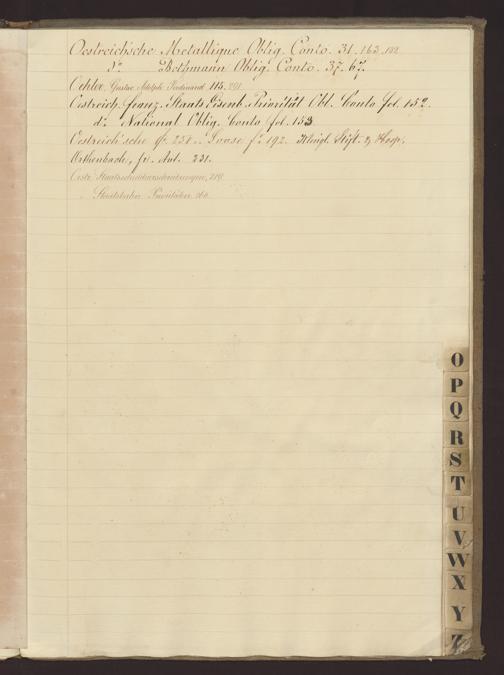 Oestreichsche Metallique Oblig. Conto. 31. 163.
do. Bethmann Oblig. Conto. 37. 67.
Oehler, Gustav Adolph Ferdinand 115. 291.
Oestreich. franz. Staats Eisenb. Priorität Obl. Conto fol. 152.
do. National Oblig. Conto fol. 153
Oestreich'sche 250 Loose fo. 192.
Orthenbach, fr. Ant. 231.
Oestr. Staatsschuldverschreibungen, 219
" Staatsbahn Prioritäten 266.
O
P
Q
R
S
T
U
V
W
X
Y
Z